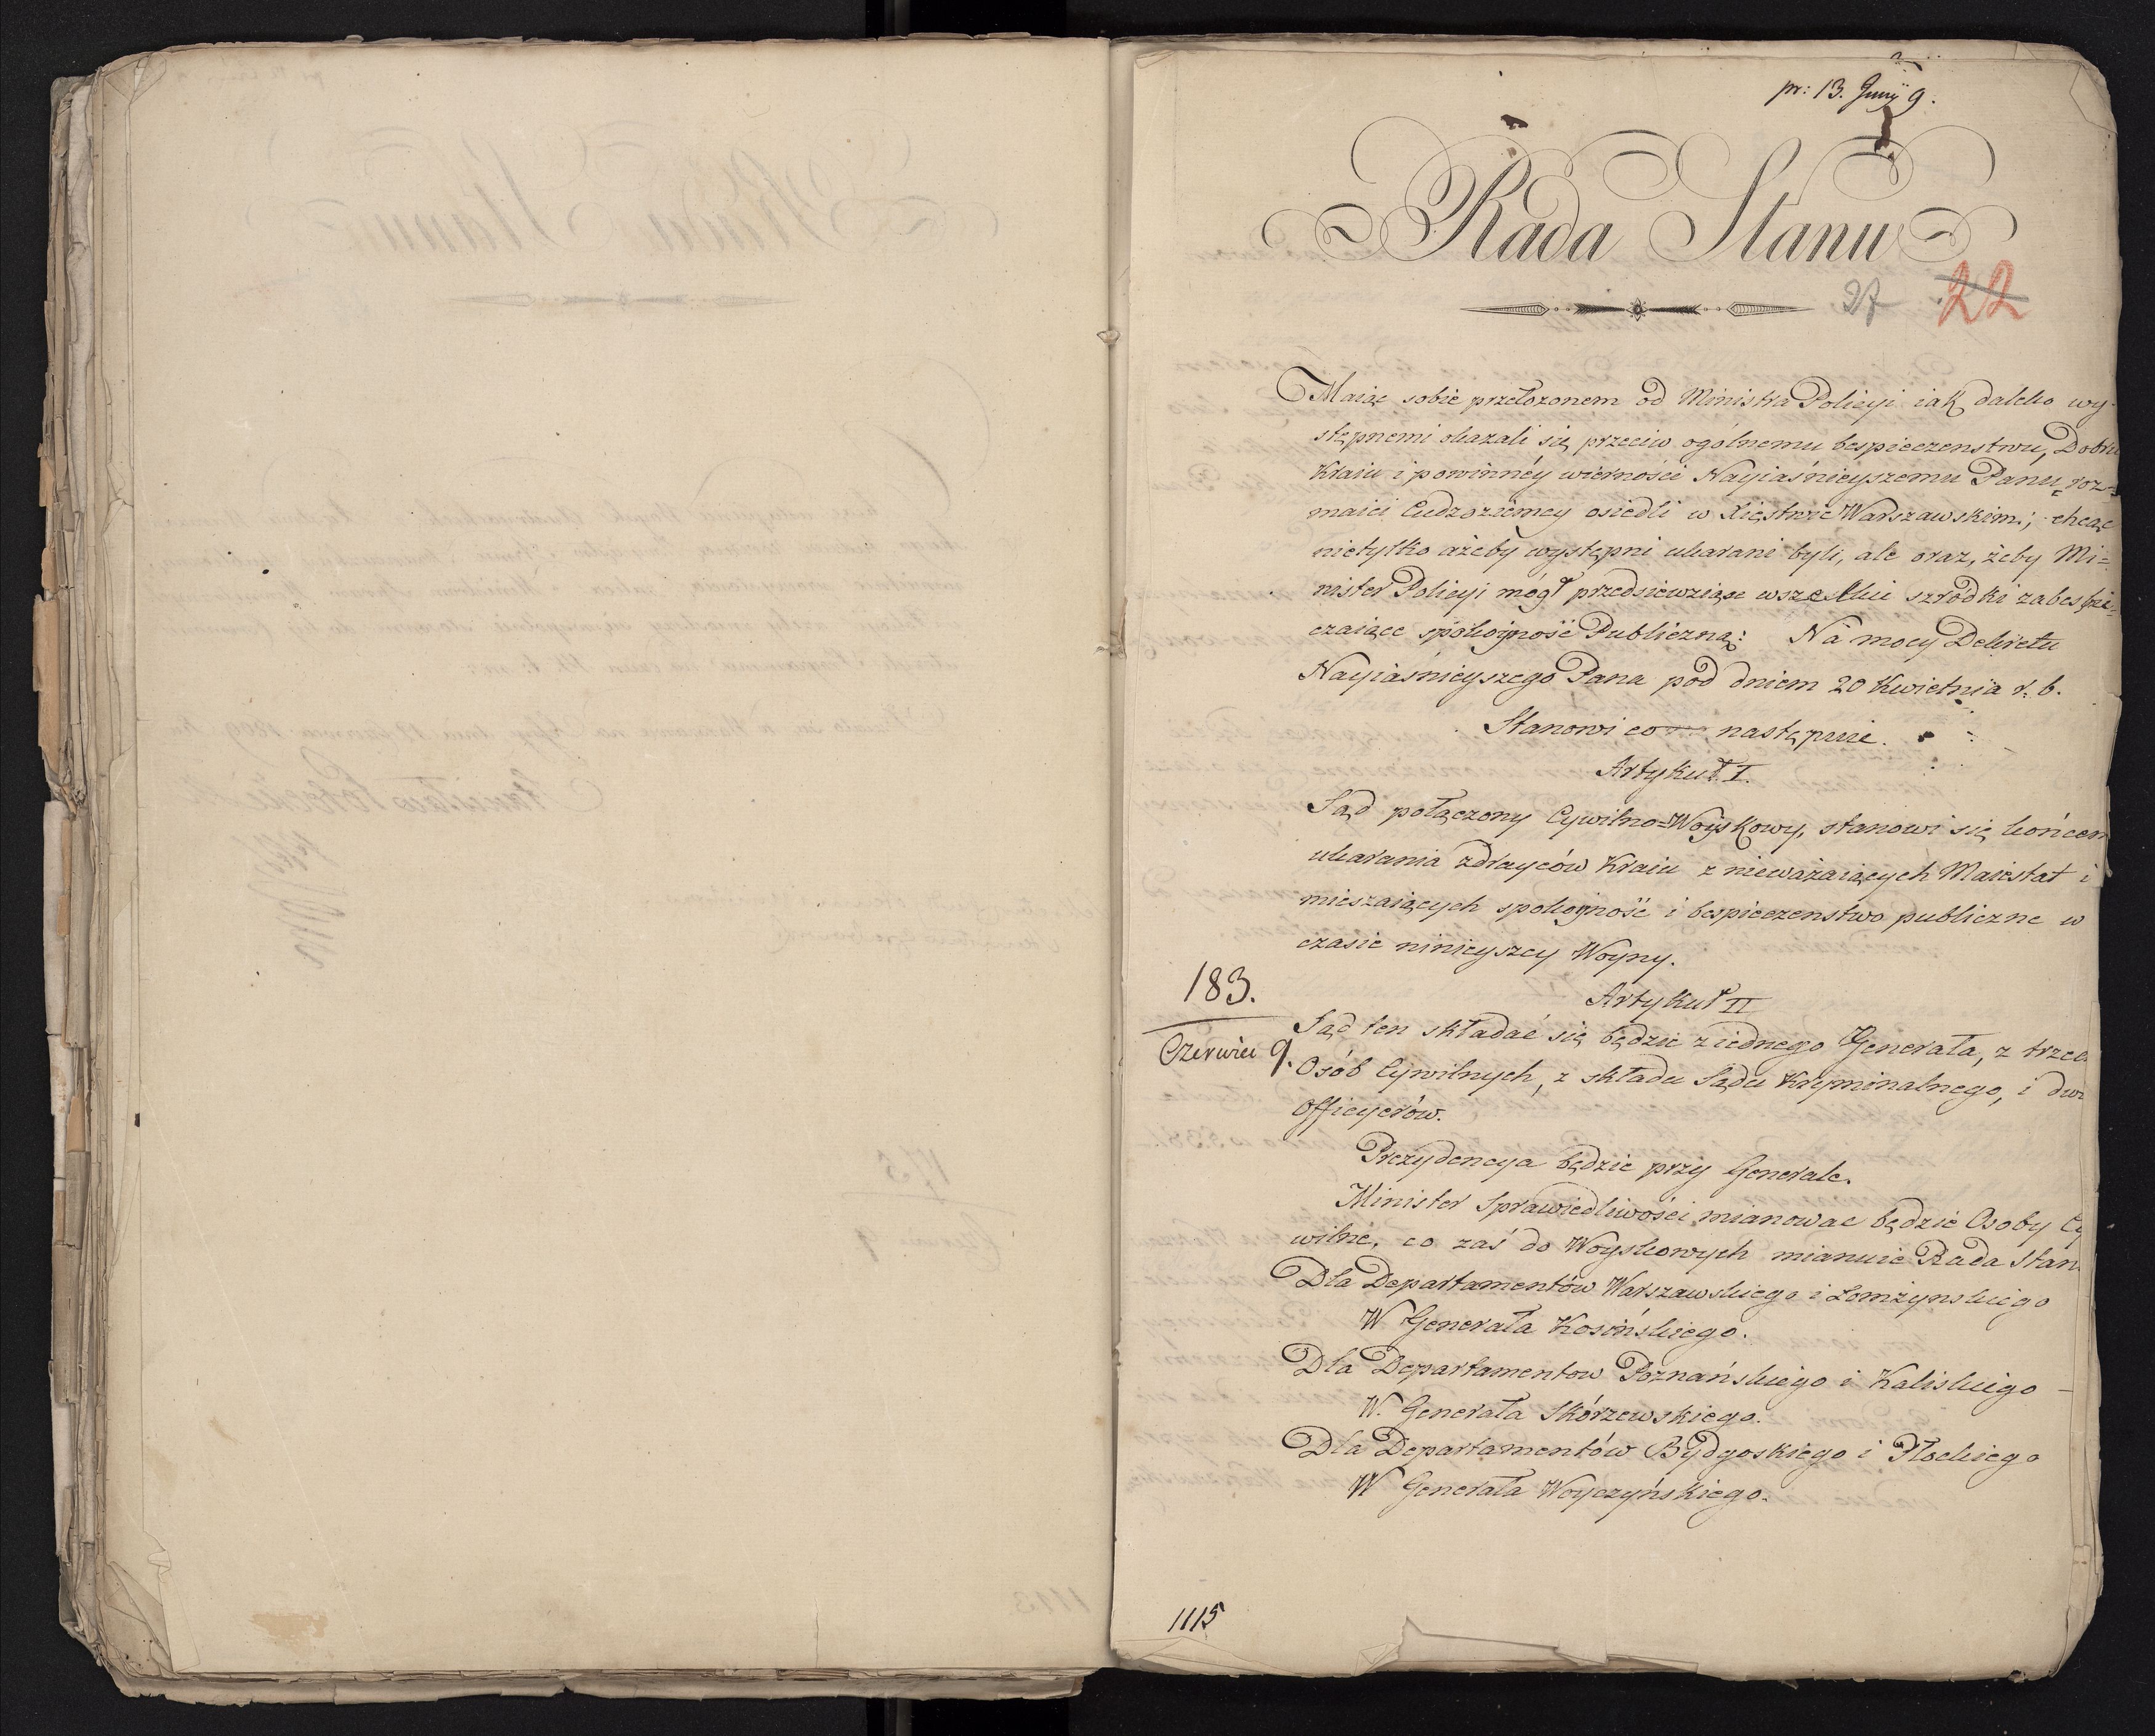 pr: 13. Junij 9.
Rada Stanu
27 22
Maiąc sobie przełozonem od Ministra Policyi iak daleko wy-
stępnemi okazali się przeciw ogólnemu bespieczenstwu, Dobru
Kraiu i powinnéy wierności Nayiaśnieyszemu Panu, roz=
maici Cudzoziemcy osiedli w Xięstwie Warszawskim; chcąc
nietylko ażeby występni ukarani byli, ale oraz, żeby Mi=
nister Policyi mógł przedsiewziąsc wszelkie szrodki zabespie=
czaiące spokoyność Publiczną: Na mocy Dekretu
Nayiaśnieyszego Pana pod dniem 20 Kwietnia r. b.
Stanowi co następuie.
Artykuł I.
Sąd połączony Cywilno=Woyskowy, stanowi się końcem
ukarania zdrayców Kraiu znieważaiących Maiestat i
mieszaiących spokoyność i bespieczenstwo publiczne w
czasie ninieyszey Woyny.
183.
Czerwiec 9.
Artykuł II
Sąd ten składać się będzie z iednego Generała, z trzech
Osób Cywilnych, z składu Sądu Kryminalnego, i dwu
Officyerów.
Prezydencya będzie przy Generale.
Minister Sprawiedliwości mianowac będzie Osoby Cy
wilne, co zaś do Woyskowych mianuie Rada Stan
Dla Departamentów Warszawskiego i Łomżynskiego
W Generała Kosińskiego.
Dla Departamentow Poznańskiego i Kaliskiego –
W. Generała Skórzewskiego.
Dla Departamentów Bydgoskiego i Płockiego
W Generała Woyczyńskiego.
1115